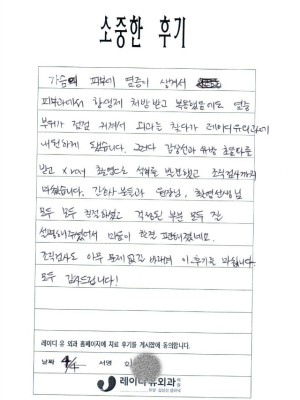 소중한 후기
가슴에 피부에 염증이 생겨서
피부과에서 항생제 처방받고 복용했음에도 염증
부위가 점점 커져서 외과를 찾다가 레이디유외과에
내원하게 됐습니다. 그러다 갑상선과 유방 초음파를
받고 x ray 촬영으로 석회를 발견했고 조직검사까지
마쳤습니다. 간호사분들과 원장님, 촬영선생님
모두 모두 친절하셨고 걱정된 부분 모두 잘
설명해주셨어서 마음이 한결 편해졌네요.
조직검사도 아무 문제 없길 바래며 이 후기를 마칩니다.
모두 감사드립니다!
레이디 유 외과 홈페이지에 치료 후기를 게시함에 동의합니다.
날짜 4/4 서명
레이디유외과